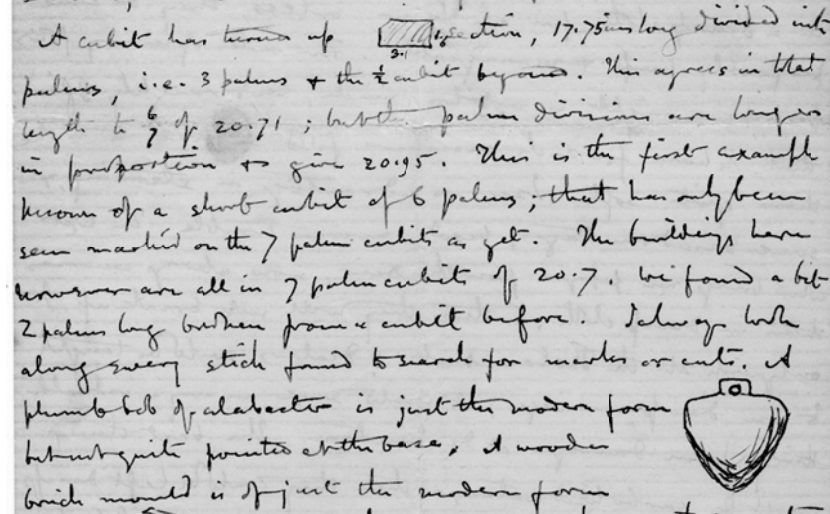 A cubit has turned up 3.1 1.6 section, 17.75 ins long divided into
palms, i.e. 3 palms + the ½ cubit beyond. This agrees in that
length to 6/7 of 20.71; but the palm divisions are longer
in proportion to give 20.95. This is the first example
known of a short cubit of 6 palms; that has only been
seen marked on the 7 palm cubits as yet. The buildings here
however are all in 7 palm cubits of 20.7. We found a bit
2 palms long broken from a cubit before. I always look
along every stick found to search for marks or cuts. A
plumb bob of alabaster is just the modern form
but not quite pointed at the base. A wooden
brick mould is of just the modern form